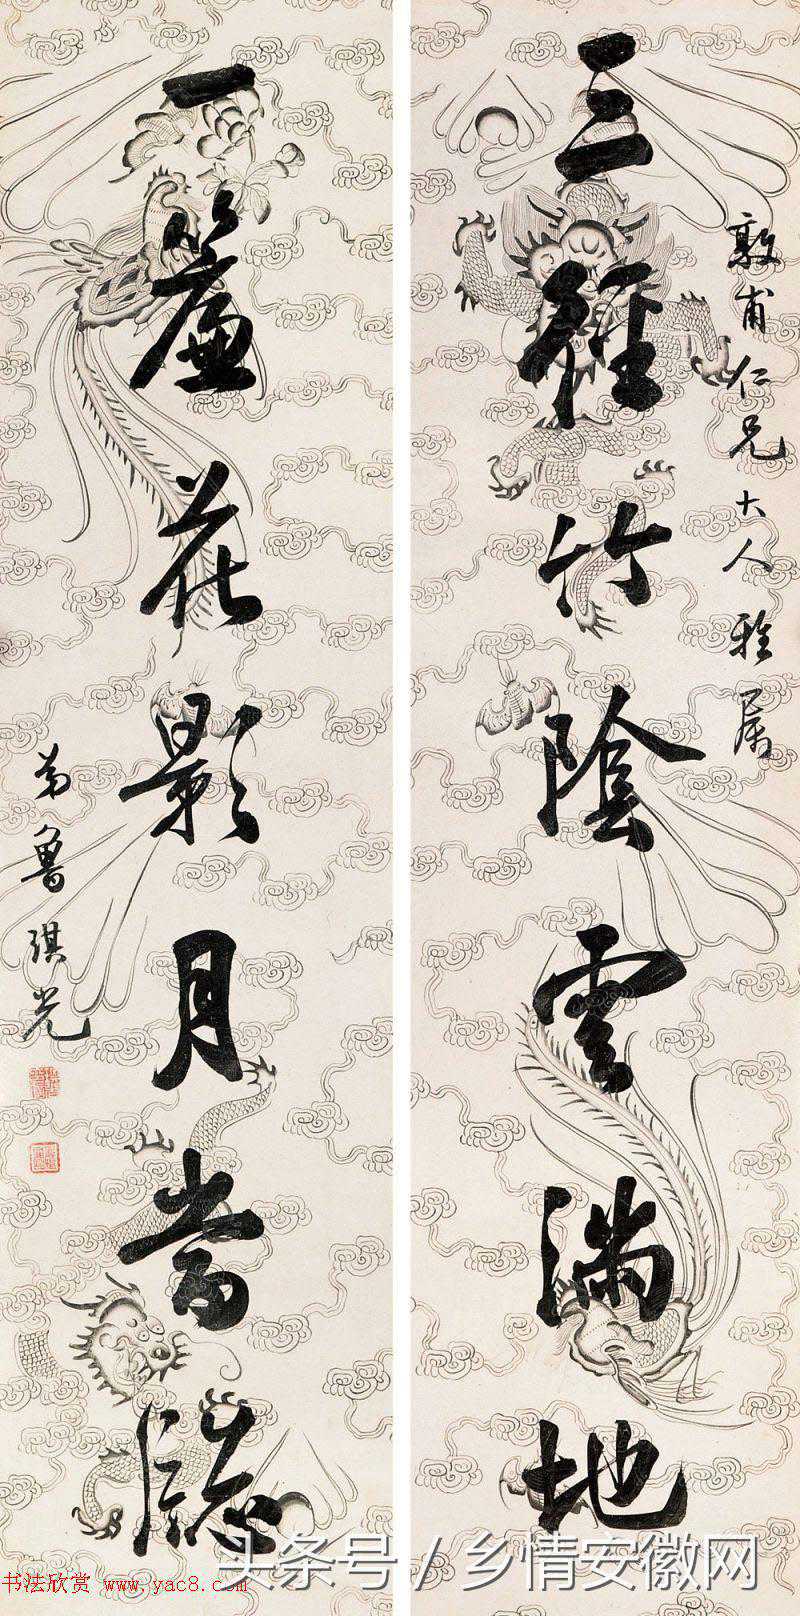 敦甫仁兄大人雅属
三径竹陰雲满地
一簾花影月當牕
弟魯琪光
头条号 / 乡情安徽网
书法欣赏 www.yac8.com